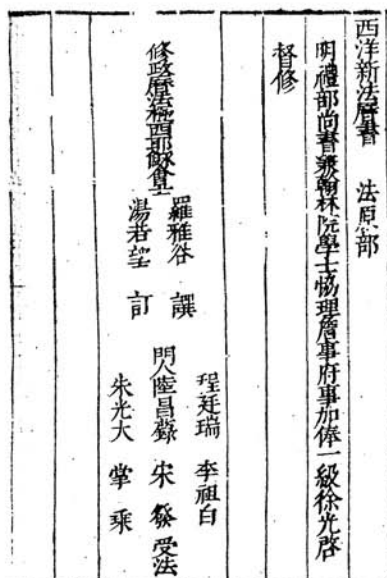 西洋新法曆書 法原部
明禮部尚書兼翰林院學士協理詹事府事加俸一級徐光啓
督修
修政曆法極西耶穌會士
羅雅谷 譔
湯若望 訂
程廷瑞 李祖白
門人陸昌 宋發受法
朱光大 掌乘